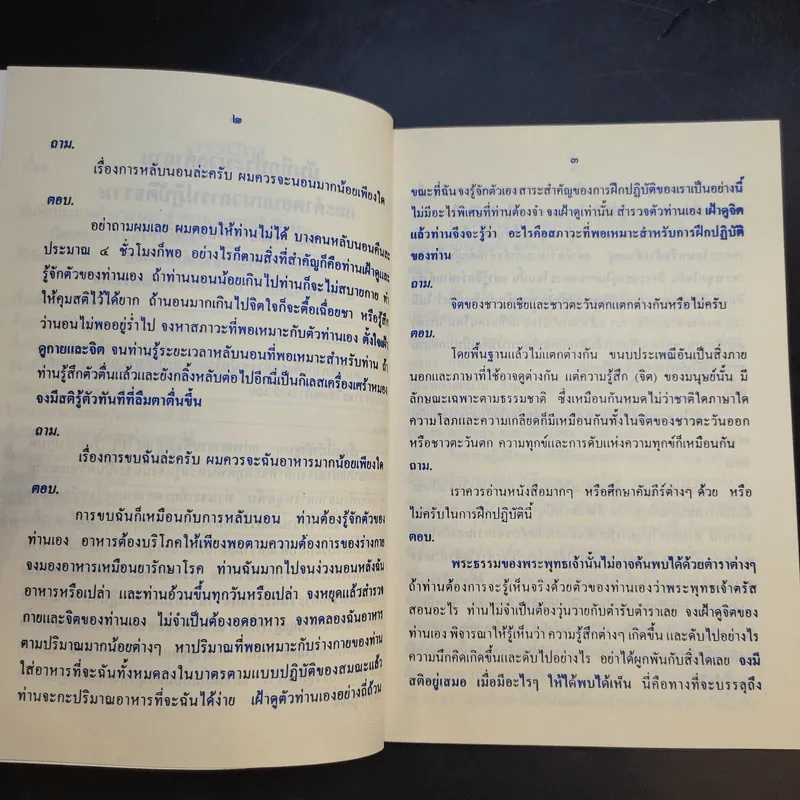 ๒
ถาม.
เรื่องการหลับนอนล่ะครับ ผมควรจะนอนมากน้อยเพียงใด
ตอบ.
อย่าถามผมเลย ผมตอบให้ท่านไม่ได้ บางคนหลับนอนคืนละ
ประมาณ ๔ ชั่วโมงก็พอ อย่างไรก็ตามสิ่งที่สำคัญก็คือท่านเฝ้าดูและ
รู้จักตัวของท่านเอง ถ้าท่านนอนน้อยเกินไปท่านก็จะไม่สบายกาย ทำ
ให้คุมสติไว้ได้ยาก ถ้านอนมากเกินไปจิตใจก็จะตื้อเฉื่อยชา หรือรู้สึก
ว่านอนไม่พออยู่ร่ำไป จงหาสภาวะที่พอเหมาะกับตัวท่านเอง ตั้งใจเฝ้า
ดูกายและจิต จนท่านรู้ระยะเวลาหลับนอนที่พอเหมาะสำหรับท่าน ถ้า
ท่านรู้สึกตัวตื่นแล้วและยังกลิ้งหลับต่อไปอีกนี่เป็นกิเลสเครื่องเศร้าหมอง
จงมีสติรู้ตัวทันทีที่ลืมตาตื่นขึ้น
ถาม.
เรื่องการขบฉันล่ะครับ ผมควรจะฉันอาหารมากน้อยเพียงใด
ตอบ.
การขบฉันก็เหมือนกับการหลับนอน ท่านต้องรู้จักตัวของ
ท่านเอง อาหารต้องบริโภคให้เพียงพอตามความต้องการของร่างกาย
จงมองอาหารเหมือนยารักษาโรค ท่านฉันมากไปจนง่วงนอนหลังฉัน
อาหารหรือเปล่า และท่านอ้วนขึ้นทุกวันหรือเปล่า จงหยุดแล้วสำรวจ
กายและจิตของท่านเอง ไม่จำเป็นต้องอดอาหาร จงทดลองฉันอาหาร
ตามปริมาณมากน้อยต่างๆ หาปริมาณที่พอเหมาะกับร่างกายของท่าน
ใส่อาหารที่จะฉันทั้งหมดลงในบาตรตามแบบปฏิบัติของสมณะแล้ว
ท่านจะกะปริมาณอาหารที่จะฉันได้ง่าย เฝ้าดูตัวท่านเองอย่างถี่ถ้วน
๓
ขณะที่ฉันจงรู้จักตัวเอง สาระสำคัญของการฝึกปฏิบัติของเราเป็นอย่างนี้
ไม่มีอะไรพิเศษที่ท่านต้องจำ จงเฝ้าดูเท่านั้น สำรวจตัวท่านเอง เฝ้าดูจิต
แล้วท่านจึงจะรู้ว่า อะไรคือสภาวะที่พอเหมาะสำหรับการฝึกปฏิบัติ
ของท่าน
ถาม.
จิตของชาวเอเชียและชาวตะวันตกแตกต่างกันหรือไม่ครับ
ตอบ.
โดยพื้นฐานแล้วไม่แตกต่างกัน ขนบประเพณีอันเป็นสิ่งภาย
นอกและภาษาที่ใช้อาจดูต่างกัน แต่ความรู้สึก (จิต) ของมนุษย์นั้น มี
ลักษณะเฉพาะตามธรรมชาติ ซึ่งเหมือนกันหมดไม่ว่าชาติใดภาษาใด
ความโลภและความเกลียดก็มีเหมือนกันทั้งในจิตของชาวตะวันออก
หรือชาวตะวันตก ความทุกข์และการดับแห่งความทุกข์ก็เหมือนกัน
ถาม.
เราควรอ่านหนังสือมากๆ หรือศึกษาคัมภีร์ต่างๆ ด้วย หรือ
ไม่ครับในการฝึกปฏิบัตินี้
ตอบ.
พระธรรมของพระพุทธเจ้านั้นไม่อาจค้นพบได้ด้วยตำราต่างๆ
ถ้าท่านต้องการจะรู้เห็นจริงด้วยตัวของท่านเองว่าพระพุทธเจ้าตรัส
สอนอะไร ท่านไม่จำเป็นต้องวุ่นวายกับตำรับตำราเลย จงเฝ้าดูจิตของ
ท่านเอง พิจารณาให้รู้เห็นว่า ความรู้สึกต่างๆ เกิดขึ้น และดับไปอย่างไร
ความนึกคิดเกิดขึ้นและดับไปอย่างไร อย่าได้ผูกพันกับสิ่งใดเลย จงมี
สติอยู่เสมอ เมื่อมีอะไรๆ ให้ได้พบได้เห็น นี่คือทางที่จะบรรลุถึง